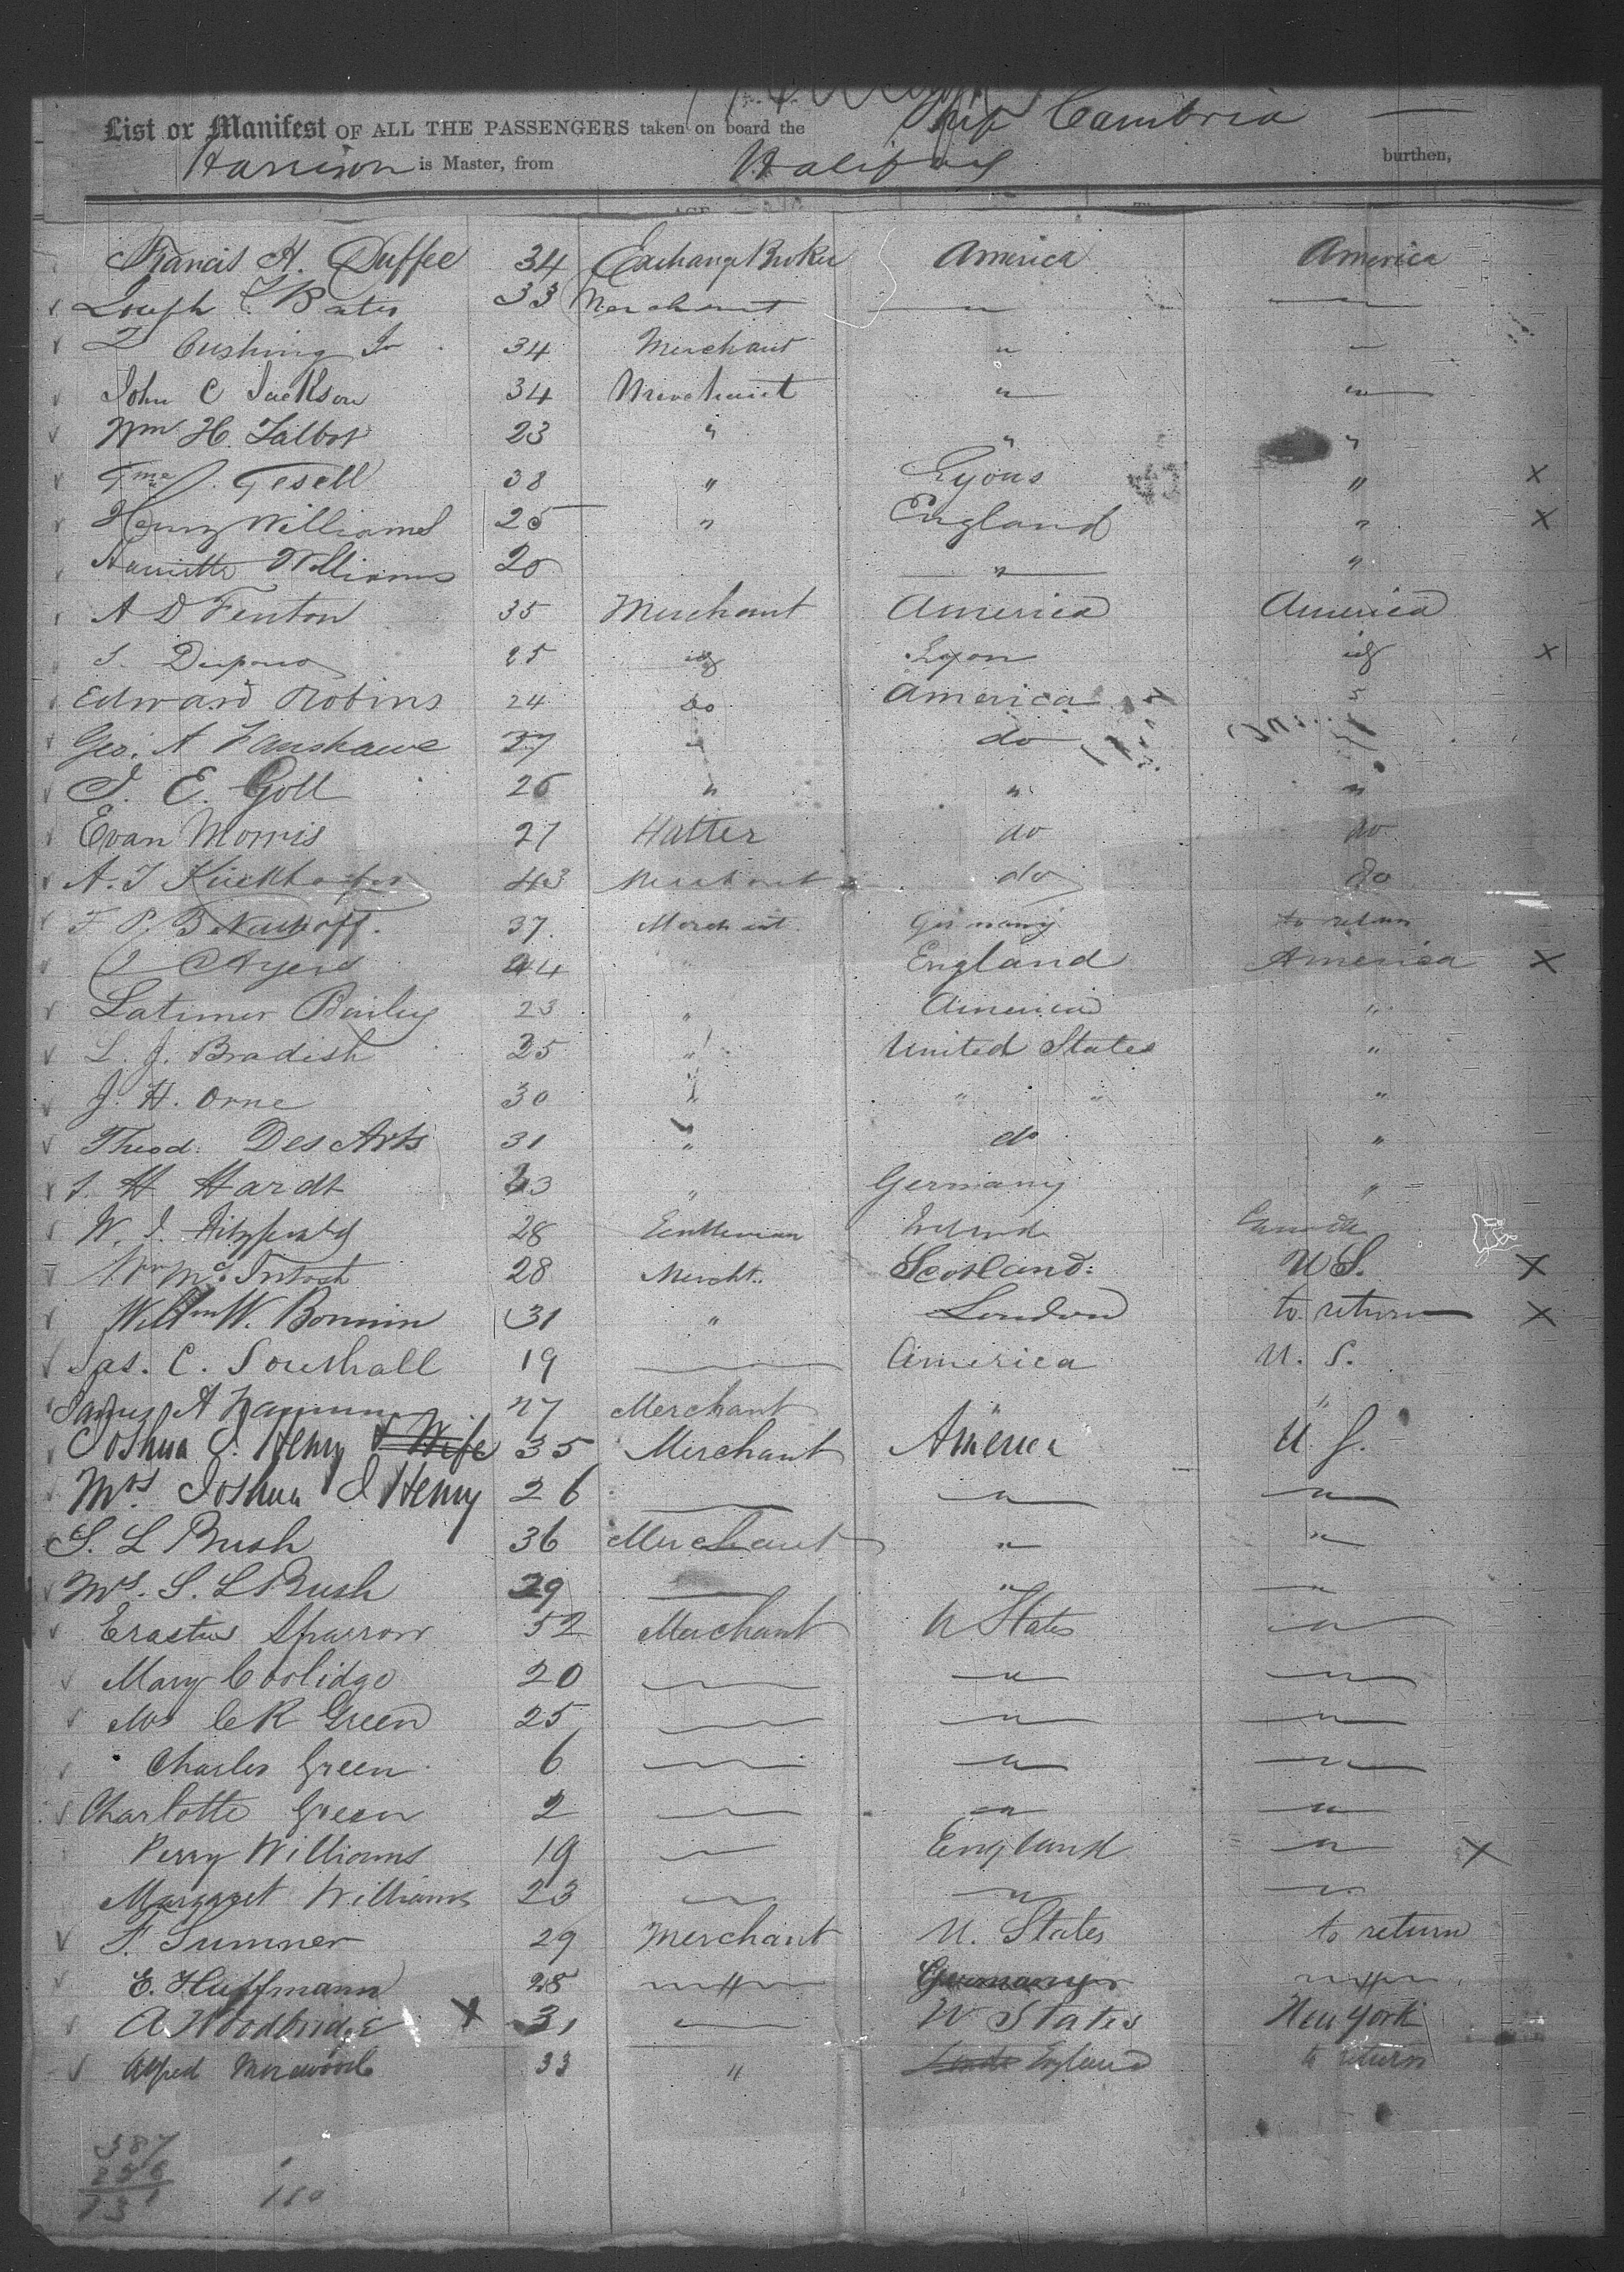 List or Manifest OF ALL THE PASSENGERS taken on board the Ship Cambria
Harrison is Master, from Halifax burthen,
Francis H. Duffee 34 Exchange Broker America America
Joseph Bates 33 Merchant " "
Cushing Jr 34 Merchant " "
John C Jackson 34 Merchant " "
Wm H. Talbot 23 " " "
Gesell 38 " Lyons " X
Henry Williams 25 " England " X
Harriette Williams 20 " "
A D Fenton 35 Merchant America America
25 id Lyon id X
Edward Robins 24 do America
Geo. A Fanshawe 37 " do "
J. E. Goll 26 " " "
Evan Morris 27 Hatter do do
A. T 43 Merchant do do
F P. 37. Merchant Germany to return
Ayers 44 " England America X
Latimer Bailey 23 " America "
L. J. Bradish 35 " United States "
J. H. Orne 30 " " " "
Theod. Des Arts 31 " do "
J. H Hardt 33 " Germany "
W. J. Fitzgerald 28 Gentleman Ireland Canada
Wm McIntosh 28 Mercht. Scotland U S. X
Willm W. Bonnin 31 " London to return X
Jas. C. Southall 19 America U. S.
James A 27 Merchant " "
Joshua J. Henry & Wife 35 Merchant America U. S.
Mrs. Joshua J Henry 26 " "
S. L Bush 36 Merchant " "
Mrs. S. L Bush 29 " "
Erastus Sparrow 52 Merchant U States "
Mary Coolidge 20 " "
Mrs C R Green 25 " "
Charles Green 6 " "
Charlotte Green 2 " "
Perry Williams 19 England " X
Margaret Williams 23 " "
F. Sumner 29 Merchant U. States to return
E. Huffmann 28 " Germany "
A Woodbridge X 31 U States New York
Alfred 33 " England to return
587
256
731
180